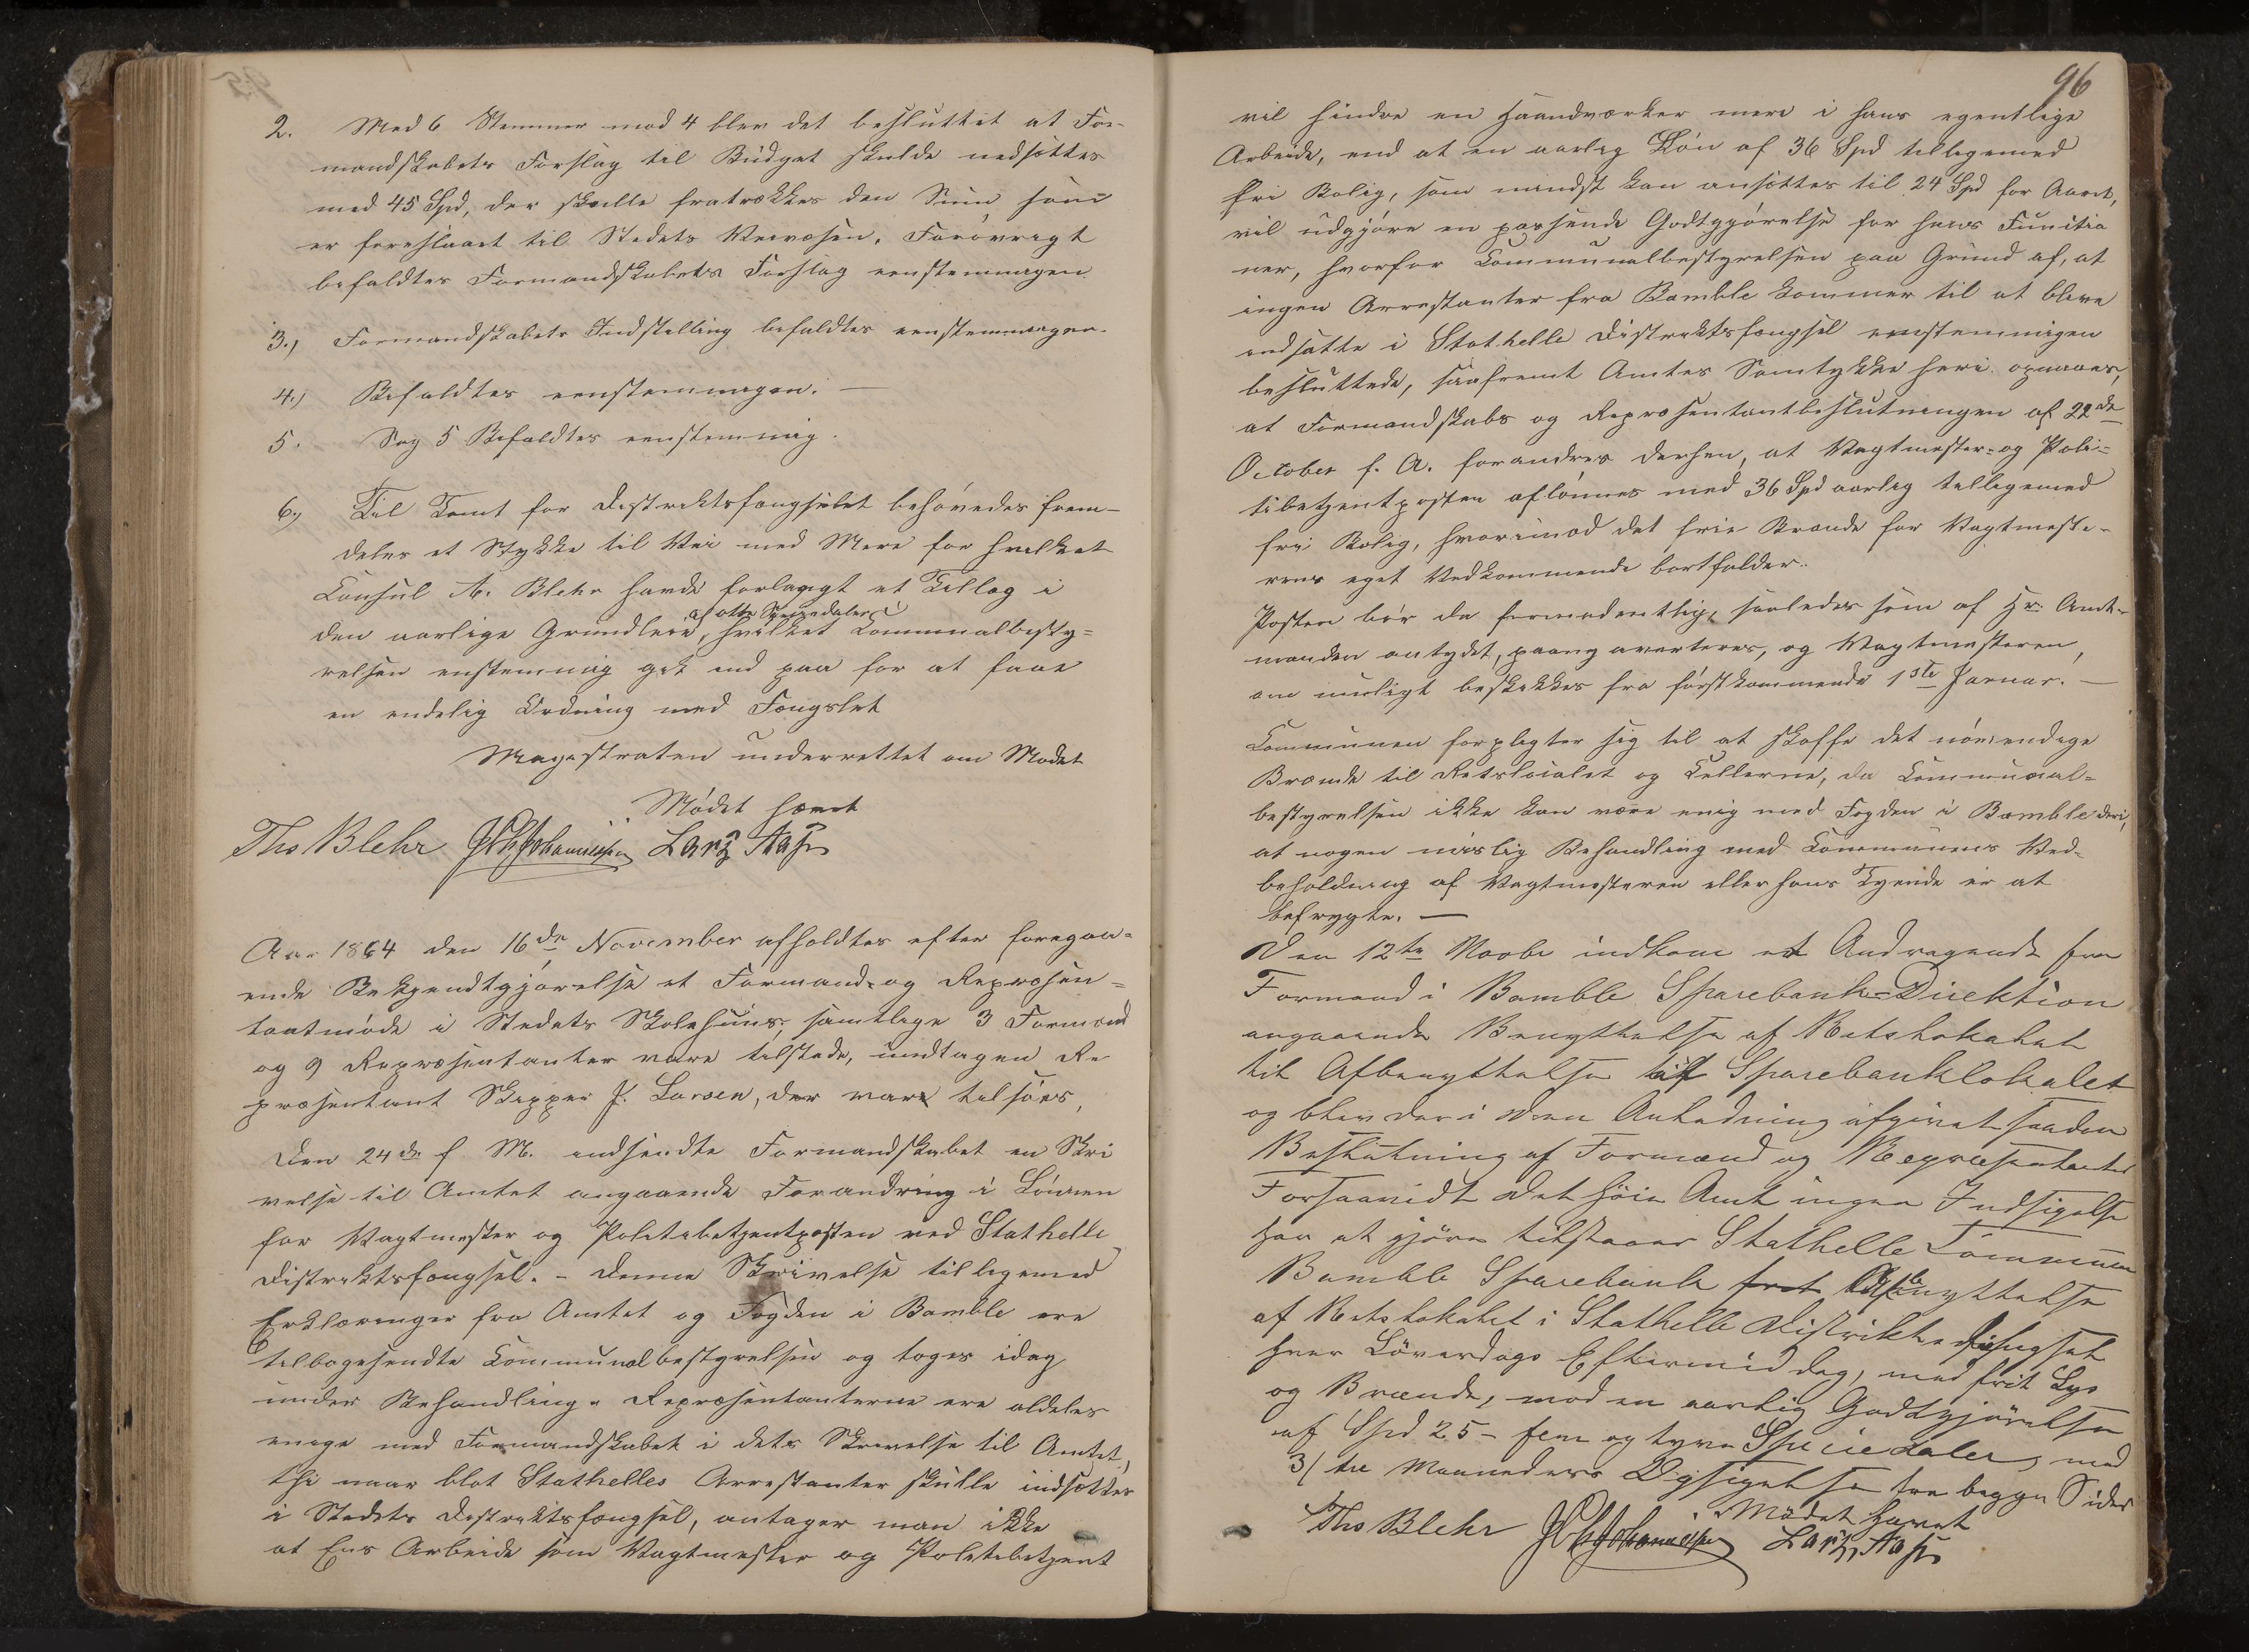 2. Med 6 Stemmer mod 4 blev det besluttet at For-
mandskabets Forslag til Budget skulde nedsættes
med 45 Spd, der skulde fratrækkes den Sum som
er foreslaaet til Stedets Veivæsen. Forøvrigt
bifaldtes Formandskabets Forslag eenstemmigen.
3.) Formandskabets Indstilling bifaldtes eenstemmigen.
4.) Bifaldtes eenstemmigen. —
5. Sag 5 Bifaldtes eenstemmig.
6.) Til Tomt for Distriktsfængselet behøvedes frem-
deles et Stykke til Vei med Mere for hvilket
Consul A. Blehr havde forlangt et Tillæg i
af otte Speciedaler i
den aarlige Grundleie, hvilket Communalbesty-
relsen enstemmig gik ind paa for at faae
en endelig Ordning med Fængslet
Magistraten underrettet om Mødet
Mødet hævet
Ths Blehr J Chr Johannessen Lars Aas
Aar 1864 den 16de November afholdtes efter foregaa-
ende Bekjendtgjørelse et Formand- og Repræsen-
tantmøde i Stedets Skolehuus; samtlige 3 Formænd
og 9 Repræsentanter vare tilstede, undtagen Re
præsentant Skipper J. Larsen, der var tilsøes,
Den 24de f. M. indsendte Formandskabet en Skri
velse til Amtet angaaende Forandring i Lønnen
for Vagtmester og Politibetjentposten ved Stathelle
Distriktsfængsel. – Denne Skrivelse tilligemed
Erklæringer fra Amtet og Fogden i Bamble ere
tilbagesendte Communalbestyrelsen og toges idag
under Behandling. Repræsentanterne ere aldeles
enige med Formandskabet i dets Skrivelse til Amtet,
thi naar blot Stathelles Arrestanter skulle indsættes
i Stedets Distriktsfængsel, antager man ikke
at Ens Arbeide som Vagtmester og Politibetjent
96
vil hindre en Haandværker mere i hans egentlige
Arbeide, end at en aarlig Løn af 36 Spd tilligemed
fri Bolig, som mindst kan ansættes til 24 Spd for Aaret,
vil udgjøre en passende Godtgjørelse for hans Funktio
ner, hvorfor Communalbestyrelsen paa Grund af, at
ingen Arrestanter fra Bamble kommer til at blive
indsatte i Stathelle Distriktsfængsel eenstemmigen
besluttede, saafremt Amtes Samtykke heri opnaaes,
at Formandskabs og Repræsentantbeslutningen af 22de
October f. A. forandres derhen, at Vagtmester- og Poli-
tibetjentposten aflønnes med 36 Spd aarlig tilligemed
fri Bolig, hvorimod det frie Brænde for Vagtmeste-
rens eget Vedkommende bortfalder.
Posten bør da formodentlig, saaledes som af Hr. Amt-
manden antydet, paany averteres, og Vagtmesteren,
om muligt beskikkes fra førstkommende 1ste Januar. —
Communen forpligter sig til at skaffe det nødvendige
Brænde til Retslocalet og Cellerne, da Communal-
bestyrelsen ikke kan være enig med Fogden i Bamble deri,
at nogen mislig Behandling med Communens Ved-
beholdning af Vagtmesteren eller hans Tyende er at
befrygte. —
Den 12te Novbr indkom et Andragende fra
Formand i Bamble Sparebank-Direktion
angaaende Benyttelse af Retslokalet
til Afbenyttelse til Sparebanklokalet
og blev der i den Anledning afgivet saadan
Beslutning af Formænd og Repræsentanter
Forsaavidt det høie Amt ingen Indsigelse
har at gjöre tilstaaes Stathelle Commune
Bamble Sparebank Afbenyttelse
af Retslokalet i Stathelle Distriktsfængsel
hver Löverdags Eftermiddag, med frit Lys
og Brænde, mod en aarlig Godtgjörelse
af Spd 25 – fem og tyve Speciedaler, med
3/ tre Maaneders Opsigelse fra begge Sider
Mödet hævet
Ths Blehr J Chr Johannessen Lars Aas